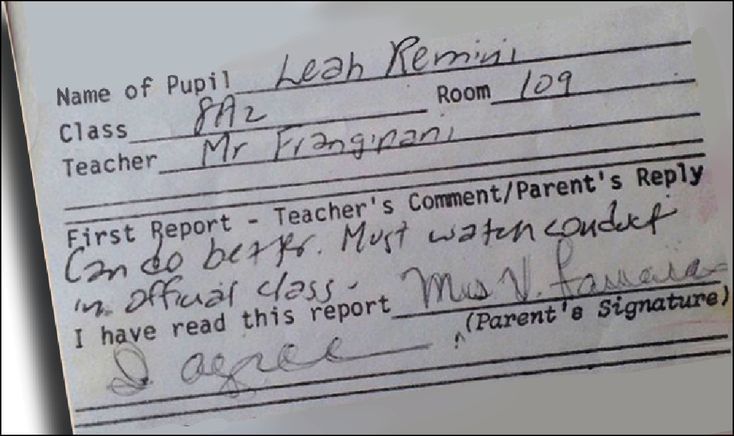 Name of Pupil Leah Remini
Class 8A2 Room 109
Teacher Mr Frangipani
First Report - Teacher's Comment/Parent's Reply
Can do better. Must watch conduct
in official class.
I have read this report Mrs V.
(Parent's Signature)
I agree